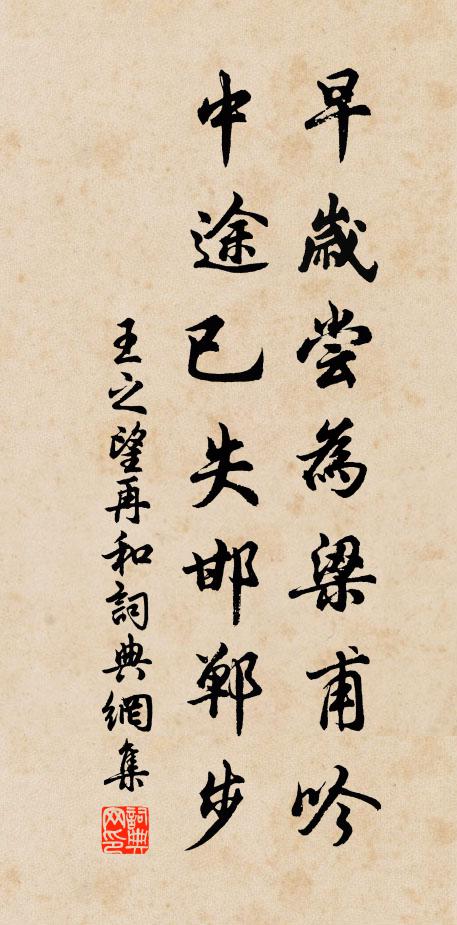 早歲尝為梁甫吟
中途已失邯鄲步
王之望再和詞典網集
詞典網印